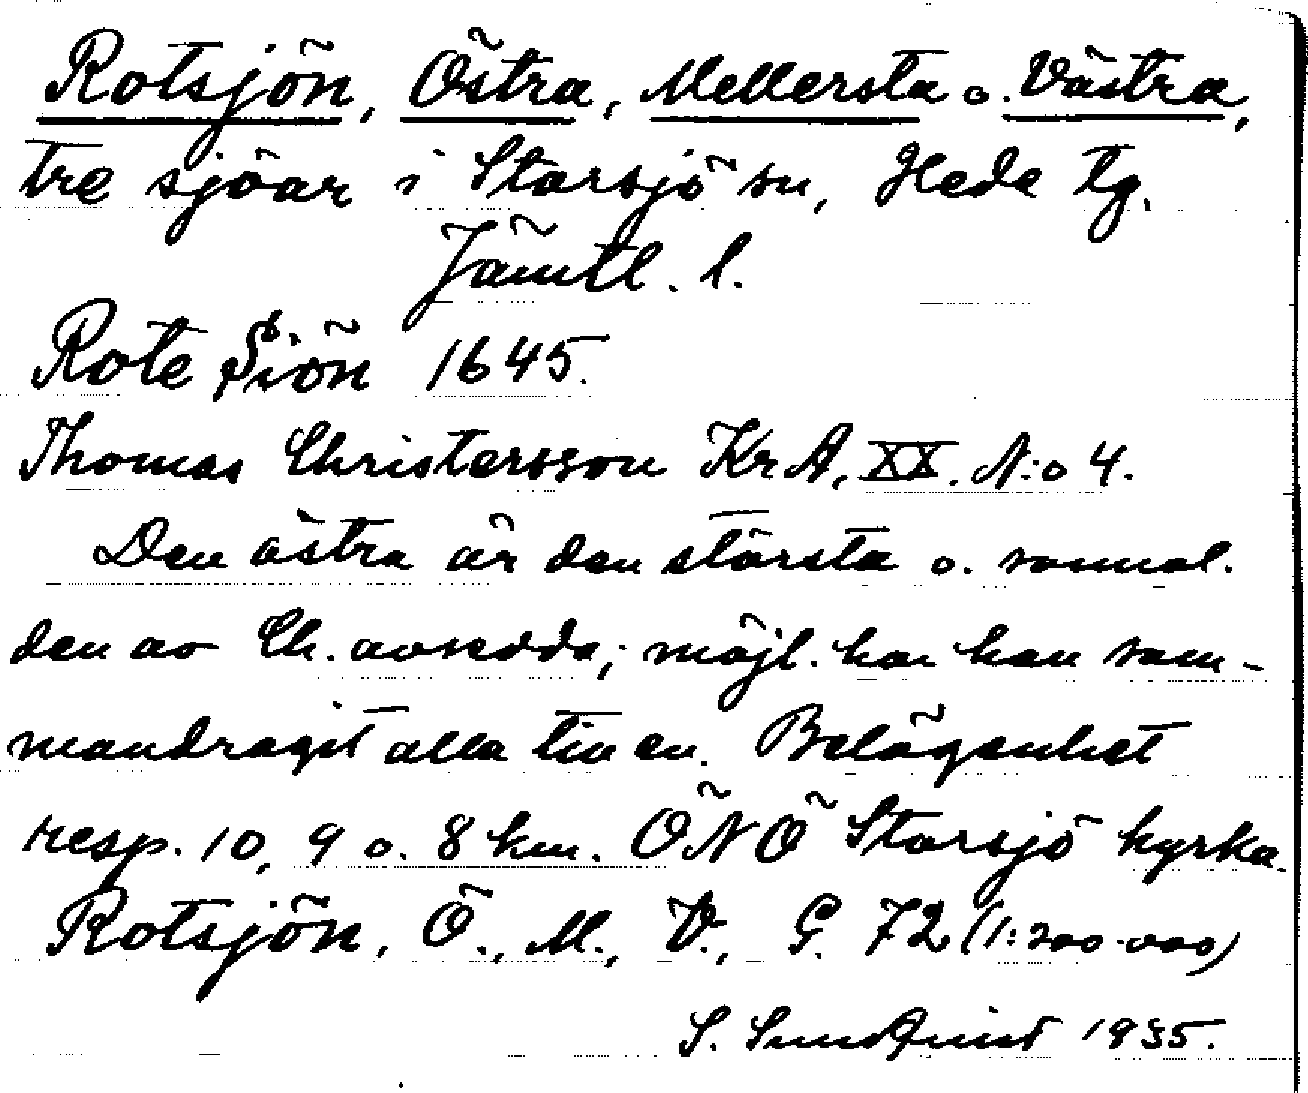 Rotsjön, Östra, Mellersta o. Västra,
tre sjöar i Storsjö sn, Hede tg.
Jämtl. l.
Rote Siön 1645.
Thomas Christersson KrA, XX. N:o 4.
Den östra är den största o. sannol.
den av Ch. avsedda; möjl. har han sam-
mandragit alla tre en. Belägenhet
resp. 10, 9 o. 8 km. ÖNÖ Storsjö kyrka.
Rotsjön, Ö., M., V., G. 72 (1:200.000)
S. Sundqvist 1935.